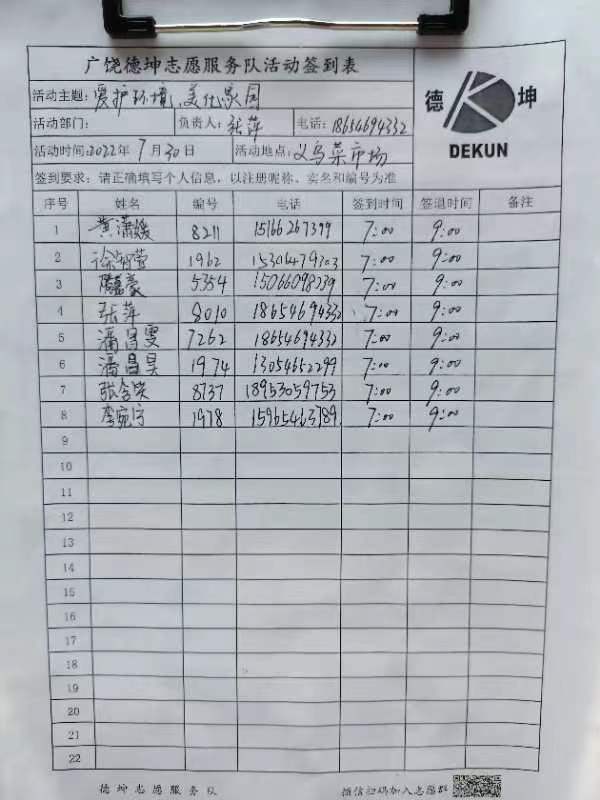 广饶德坤志愿服务队活动签到表
德 坤
DEKUN
活动主题: 爱护环境、美化家园
活动部门: 负责人: 张萍 电话: 18654694332
活动时间:2022年 7月30日 活动地点: 义乌菜市场
签到要求: 请正确填写个人信息, 以注册昵称、实名和编号为准
序号 姓名 编号 电话 签到时间 签退时间 备注
1 黄潇媛 8211 15166267399 7:00 9:00
2 1962 15304679303 7:00 9:00
3 5354 15066098239 7:00 9:00
4 张萍 8010 18654694332 7:00 9:00
5 潘昌雯 7262 18654694332 7:00 9:00
6 潘昌昊 1974 13054652299 7:00 9:00
7 8737 18953059753 7:00 9:00
8 李宛宁 1978 15965463789 7:00 9:00
9
10
11
12
13
14
15
16
17
18
19
20
21
22
德坤志愿服务队 微信扫码加入志愿群